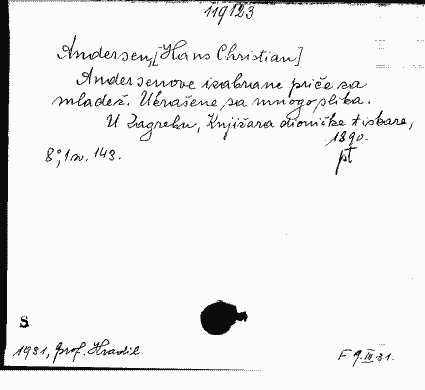 119123
Andersen, [Hans Christian]
Andersenove izabrane priče za
mladež. Ukrašene sa mnogo slika.
U Zagrebu, Knjižara dioničke tiskare,
1890.
8°, 1 sv. 143. pt
S
1931, prof. Hradil
F 9.III.31.